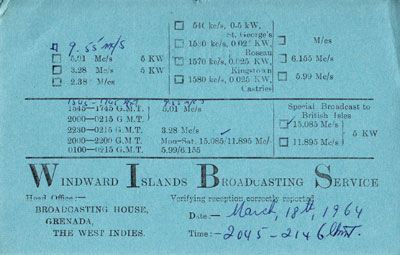 540 kc/s, 0.5 kW,
St. George's
9.55 mc/s
1590 kc/s, 0.025 kW,
Roseau
M/cs
5.01 Mc/s 5 KW
3.28 Mc/s
2.38 M/cs
1570 kc/s, 0.025 kW,
Kingstown
6.155 Mc/s
1580 kc/s, 0.025 kW,
Castries
5.99 Mc/s
1545—1745 G.M.T. 5.01 Mc/s
2000—0215 G.M.T.
Special Broadcast to
British Isles
2230—0215 G.M.T. 3.28 Mc/s
15.085 Mc/s
5 KW
2000—2200 G.M.T. Mon-Sat. 15.085/11.895 Mc/s
11.895 Mc/s
0100—0215 G.M.T. 5.99/6.155
WINDWARD ISLANDS BROADCASTING SERVICE
Head Office:—
Verifying reception correctly reported
BROADCASTING HOUSE,
GRENADA,
THE WEST INDIES.
Date:— March, 18th, 1964
Time:— 2045-2146 Gmt.